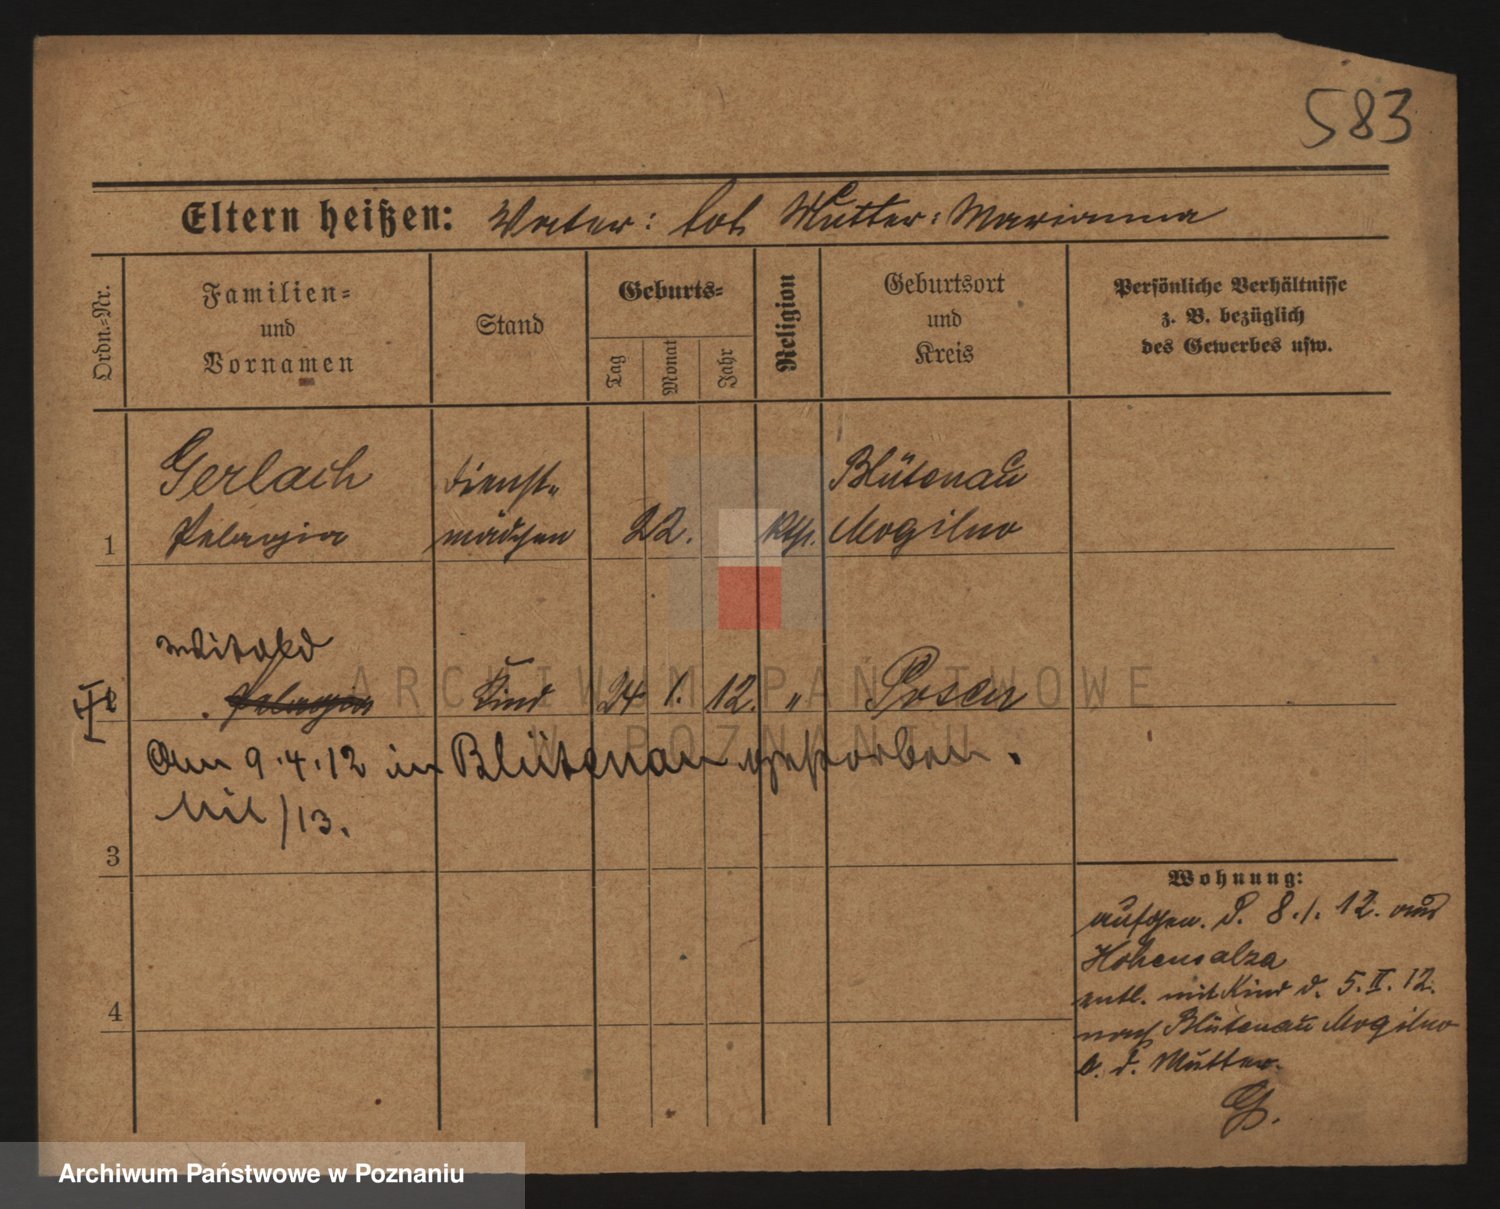 583
Eltern heißen: Vater: tot Mutter: Marianna
Ordn.-Nr.
Familien-
und
Vornamen
Stand
Geburts-
Tag
Monat
Jahr
Religion
Geburtsort
und
Kreis
Persönliche Verhältnisse
z. B. bezüglich
des Gewerbes usw.
Gerlach Dienst- Blütenau
1 Pelagia mädchen 22. Kth. Mogilno
Witold
Kind 24 1. 12. " Posen
Am 9.4.12 in Blütenau gestorben.
Mil /13.
3
4
Wohnung:
aufgen. d. 8.1.12. aus
Hohensalza
entl. mit Kind d. 5.II.12.
nach Blütenau Mogilno
b. d. Mutter.
ARCHIWUM PAŃSTWOWE
W POZNANIU
Archiwum Państwowe w Poznaniu